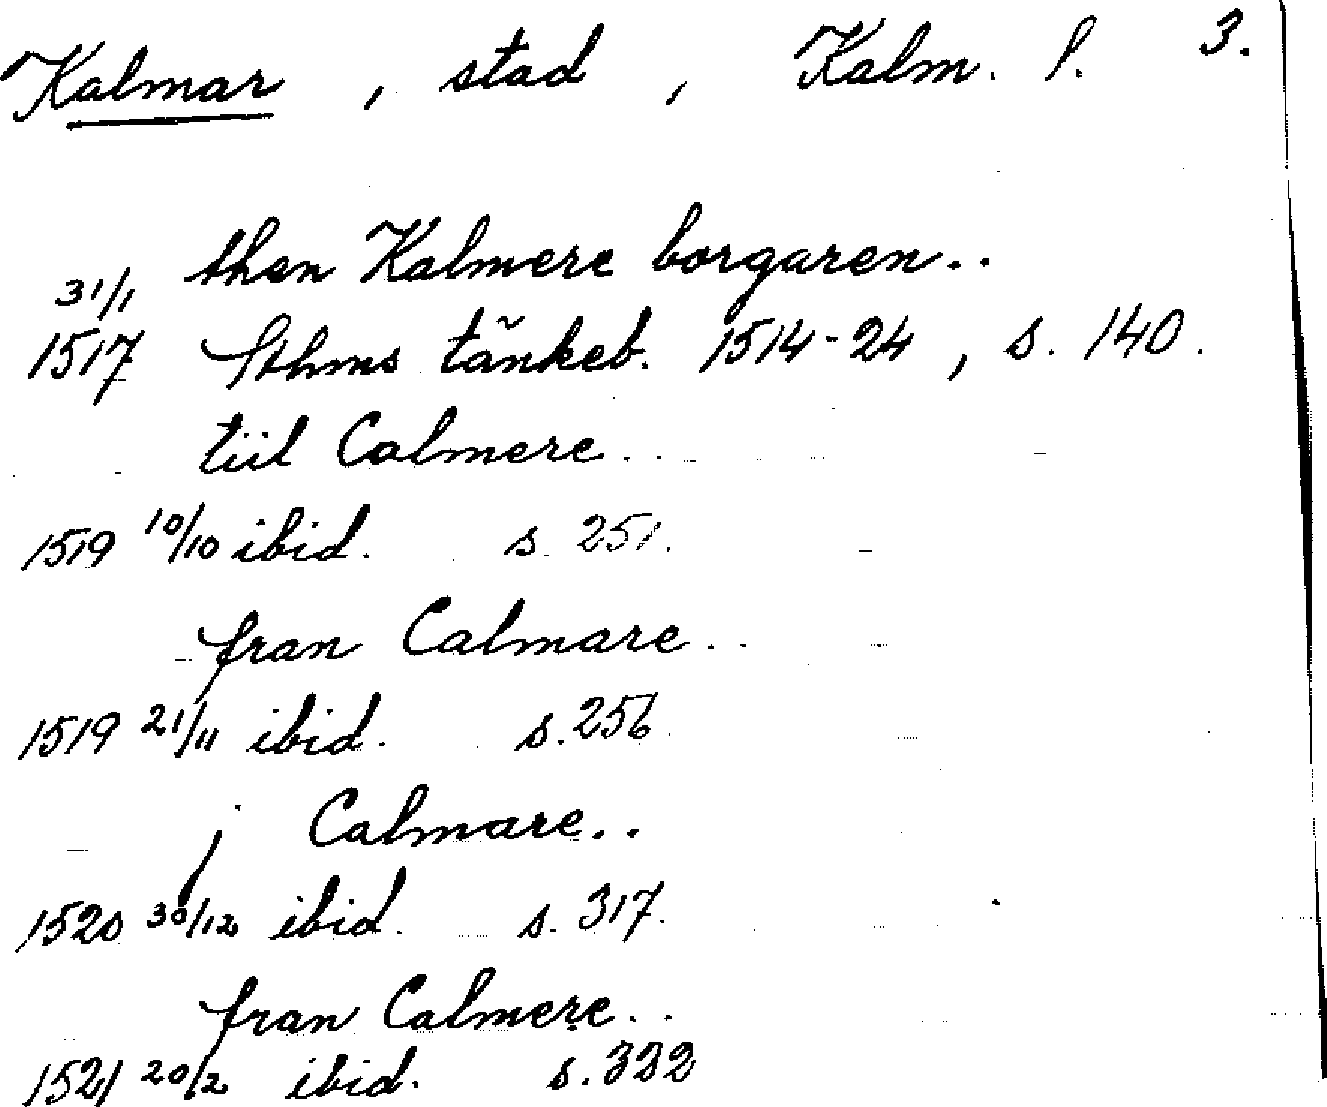 Kalmar, stad, Kalm. l. 3.
then Kalmere borgaren..
31/1
1517 Sthms tänkeb. 1514-24, s. 140.
tiil Calmere..
1519 10/10 ibid. s. 251.
fran Calmare..
1519 21/11 ibid. s. 256
j Calmare..
1520 30/12 ibid. s. 317.
fran Calmere..
1521 20/2 ibid. s. 332